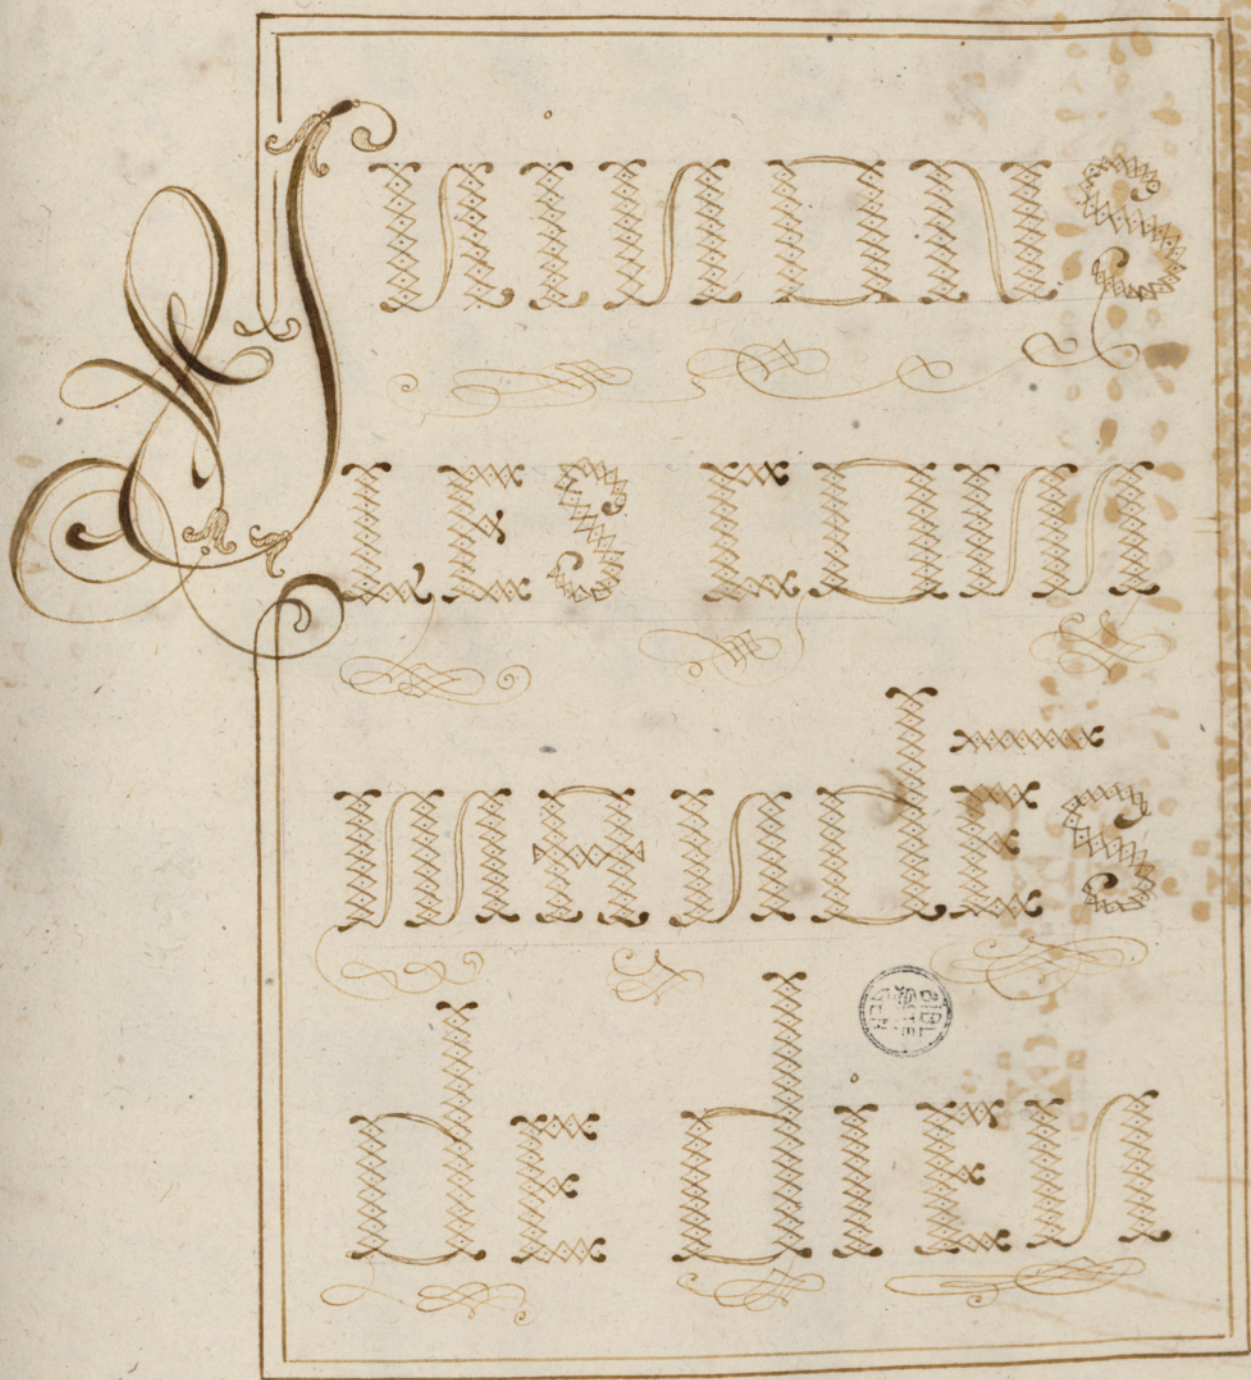 SUIUONS
LES COM
MANdĒS
dE dIEU
BIBL
STE
GEN